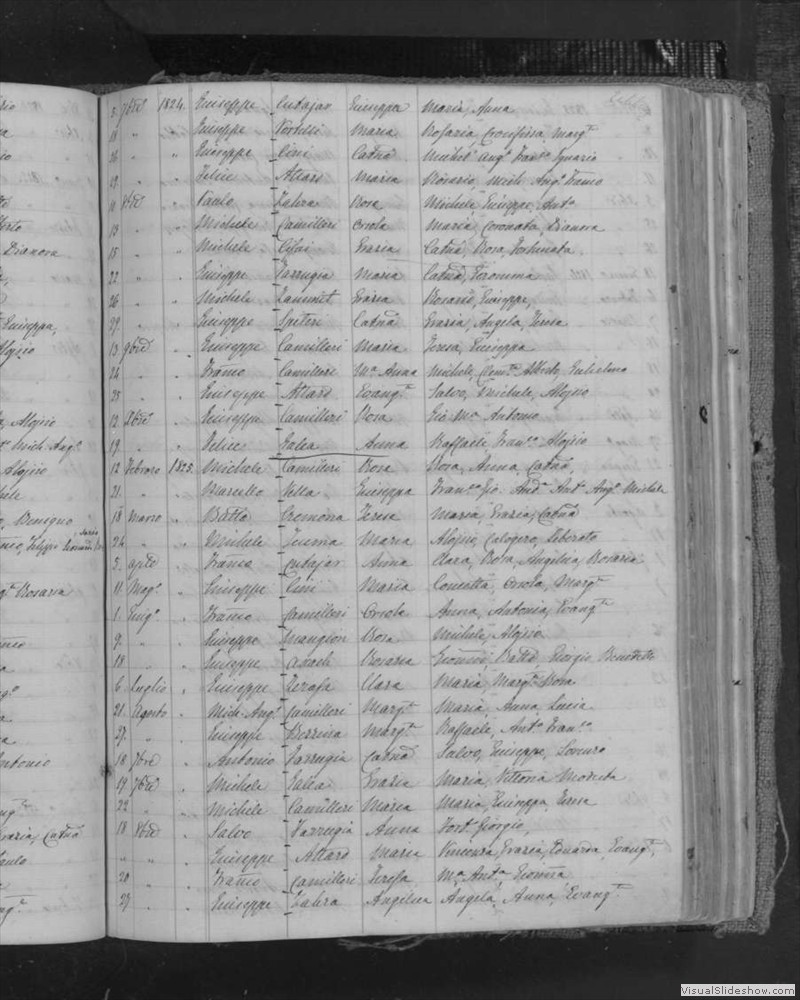 5. 7bre 1824. Giuseppe Cutajar Giuseppa Maria, Anna
15 " " Giuseppe Portelli Maria Rosaria, Crocifissa, Margta
16 " " Giuseppe Cini Catna Ignazio
19. " " Felice Attard Maria Rosario, Mich: Ango Franco
11 8bre " Paulo Zahra Rosa Michele, Giuseppe, Anto
13 " " Michele Camilleri Orsola Maria, Coronata, Dianora
15 " " Michele Grazia Catna, Rosa, Fortunata
22 " " Giuseppe Farrugia Maria Catna,
26 " " Michele Zammit Grazia Rosario, Giuseppe,
29. " " Giuseppe Spiteri Catna Grazia, Angela, Teresa
13 9bre " Giuseppe Camilleri Maria Teresa, Giuseppa
24 " " Franco Camilleri Ma Anna Michele, Alberto, Guglielmo
25 " " Giuseppe Attard Evangta Salvo, Michele, Aloisio
12 Xbre " Giuseppe Camilleri Rosa Gio Ma Antonio
19. " " Felice Galea Anna Raffaele, Franco Aloisio
12 Febraro 1825. Michele Camilleri Rosa Rosa, Anna, Catna
21. " " Marcello Vella Giuseppa Franco Gio: Anda Anto Ango Michele
18 Marzo " Batta Cremona Teresa Maria, Grazia, Catna
24 " " Michele Maria Aloisio, Calogero, Liberato
5. aple " Franco Cutajar Anna Clara, Rosa, Angelica, Rosaria
11. Mago " Giuseppe Cini Maria Concetta, Orsola, Margta
1. Giugo " Franco Camilleri Orsola Anna, Antonia, Evangta
9. " " Giuseppe Mangion Rosa Michele, Aloisio
18 " " Giuseppe Rosaria Giovanni, Batta, Giorgio, Benedetto
6 Luglio " Giuseppe Clara Maria, Margta Rosa
21. Agosto " Mich: Ango Camilleri Margta Maria, Anna Lucia
27. " " Giuseppe Margta Raffaele, Anto Franco
18 7bre " Antonio Farrugia Catna Salvo, Giuseppe, Lorenzo
19 9bre " Michele Galea Grazia Maria, Vittoria
22 " " Michele Camilleri Maria Maria, Giuseppa, Teresa
18 Xbre " Salvo Farrugia Anna Giorgio,
" " " Giuseppe Attard Maria Vincenza, Grazia, Evangta,
20 " " Franco Camilleri Teresa Ma Anta Giovanna
27 " " Giuseppe Zahra Angelica Angela, Anna, Evangta
Dianora
Giuseppa,
Aloisio
Aloisio
Mich: Ango
Aloisio
Benigno
Rosaria
Antonio
Grazia, Catna
VisualSlideshow.com